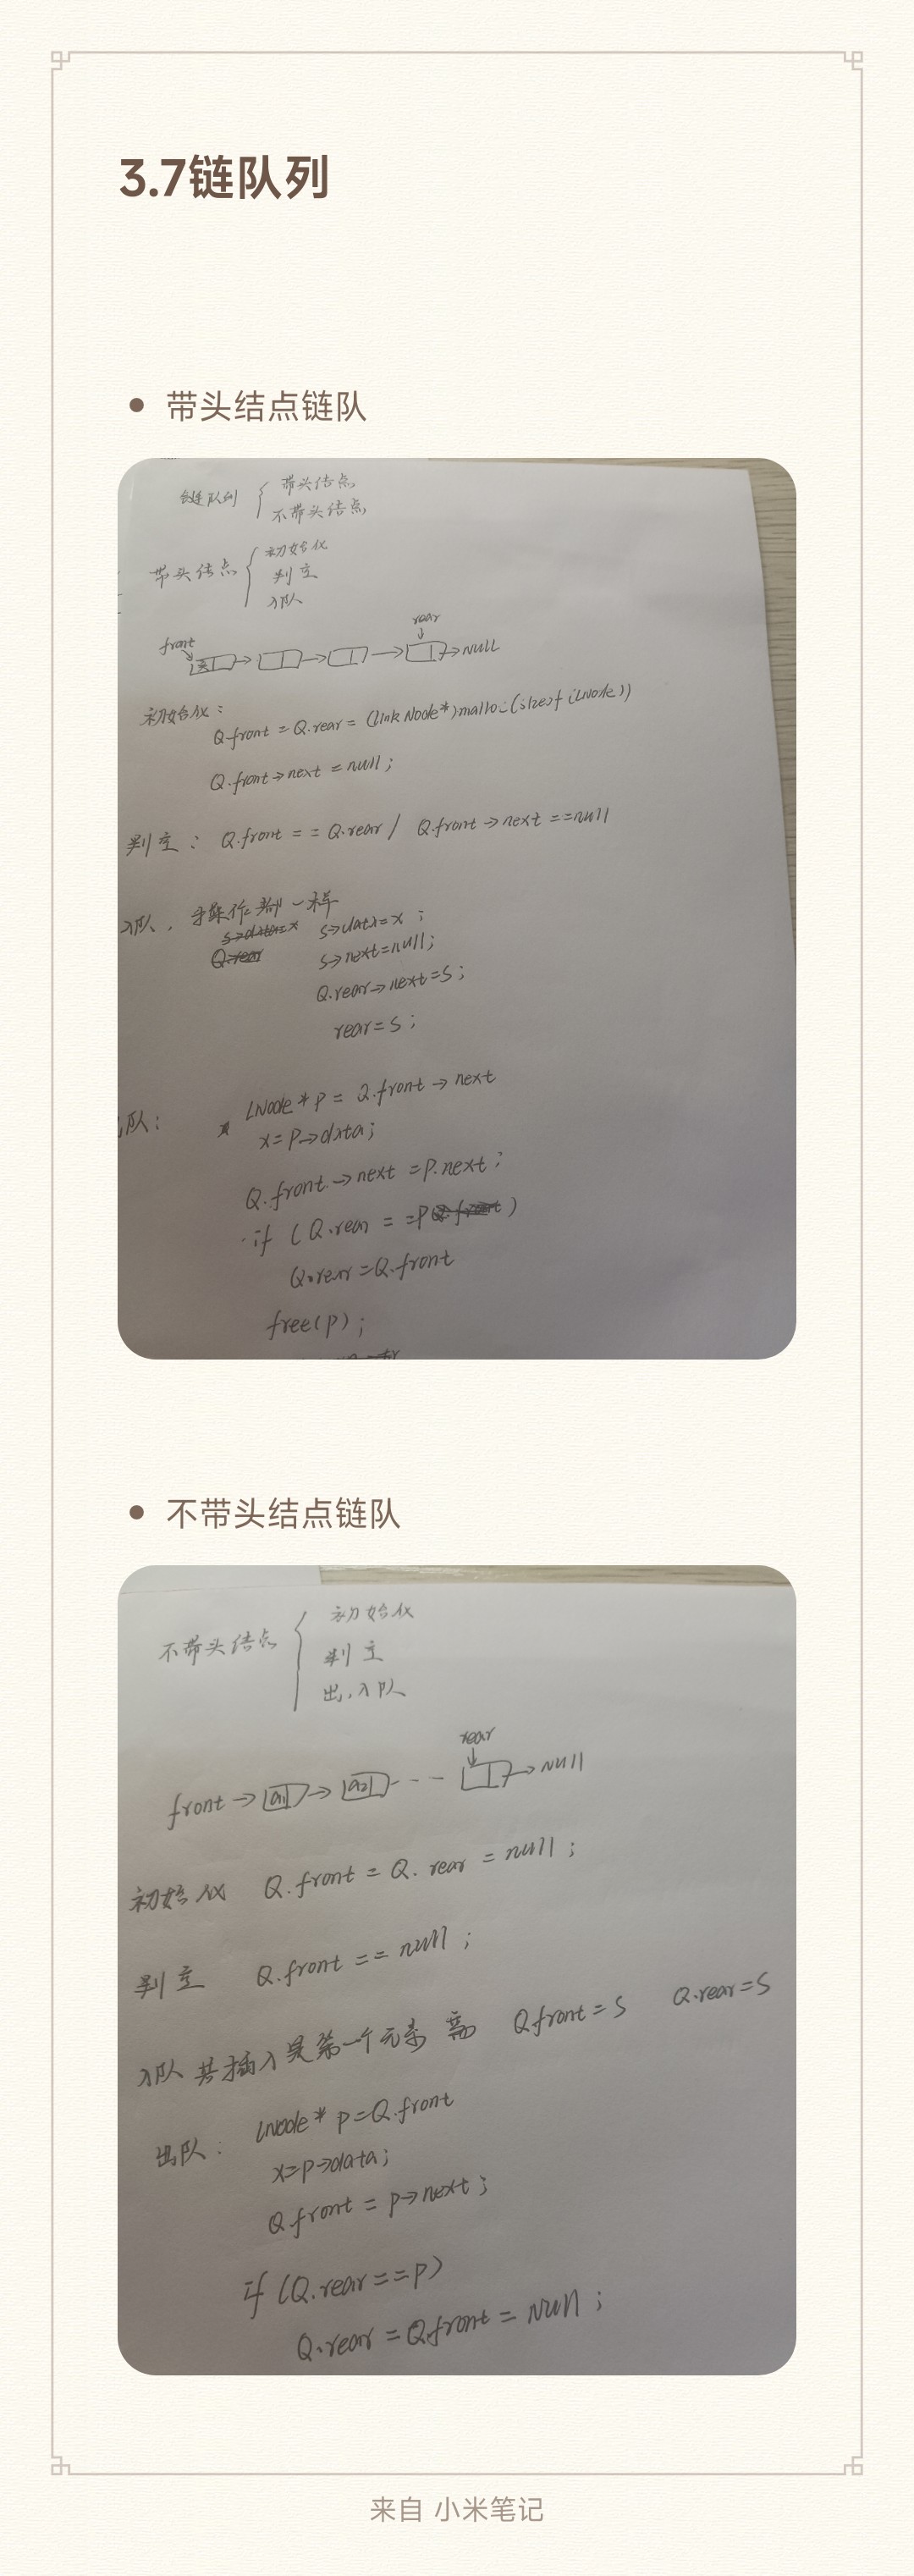 3.7链队列
带头结点链队
链队列 { 带头结点
不带头结点
带头结点 { 初始化
判空
入队
rear
front
NULL
初始化:
Q.front = Q.rear = (LinkNode*)malloc(sizeof(LNode))
Q.front→next = null;
判空: Q.front == Q.rear / Q.front→next ==null
入队,
一样
s→data=x ;
s→next=null;
Q.rear→next=s;
rear=s;
队: LNode*p = Q.front→next
x=p→data;
Q.front→next =p.next;
if (Q.rear ==p )
Q.rear=Q.front
free(p);
不带头结点链队
不带头结点 { 初始化
判空
出、入队
rear
front → a1 → a2 -- → NULL
初始化 Q.front = Q.rear = null;
判空 Q.front == null;
入队 若插入是第一个元素 需 Q.front=s Q.rear=s
出队: LNode* p=Q.front
x=p→data;
Q.front = p→next;
if (Q.rear==p)
Q.rear=Q.front = NUll;
来自 小米笔记